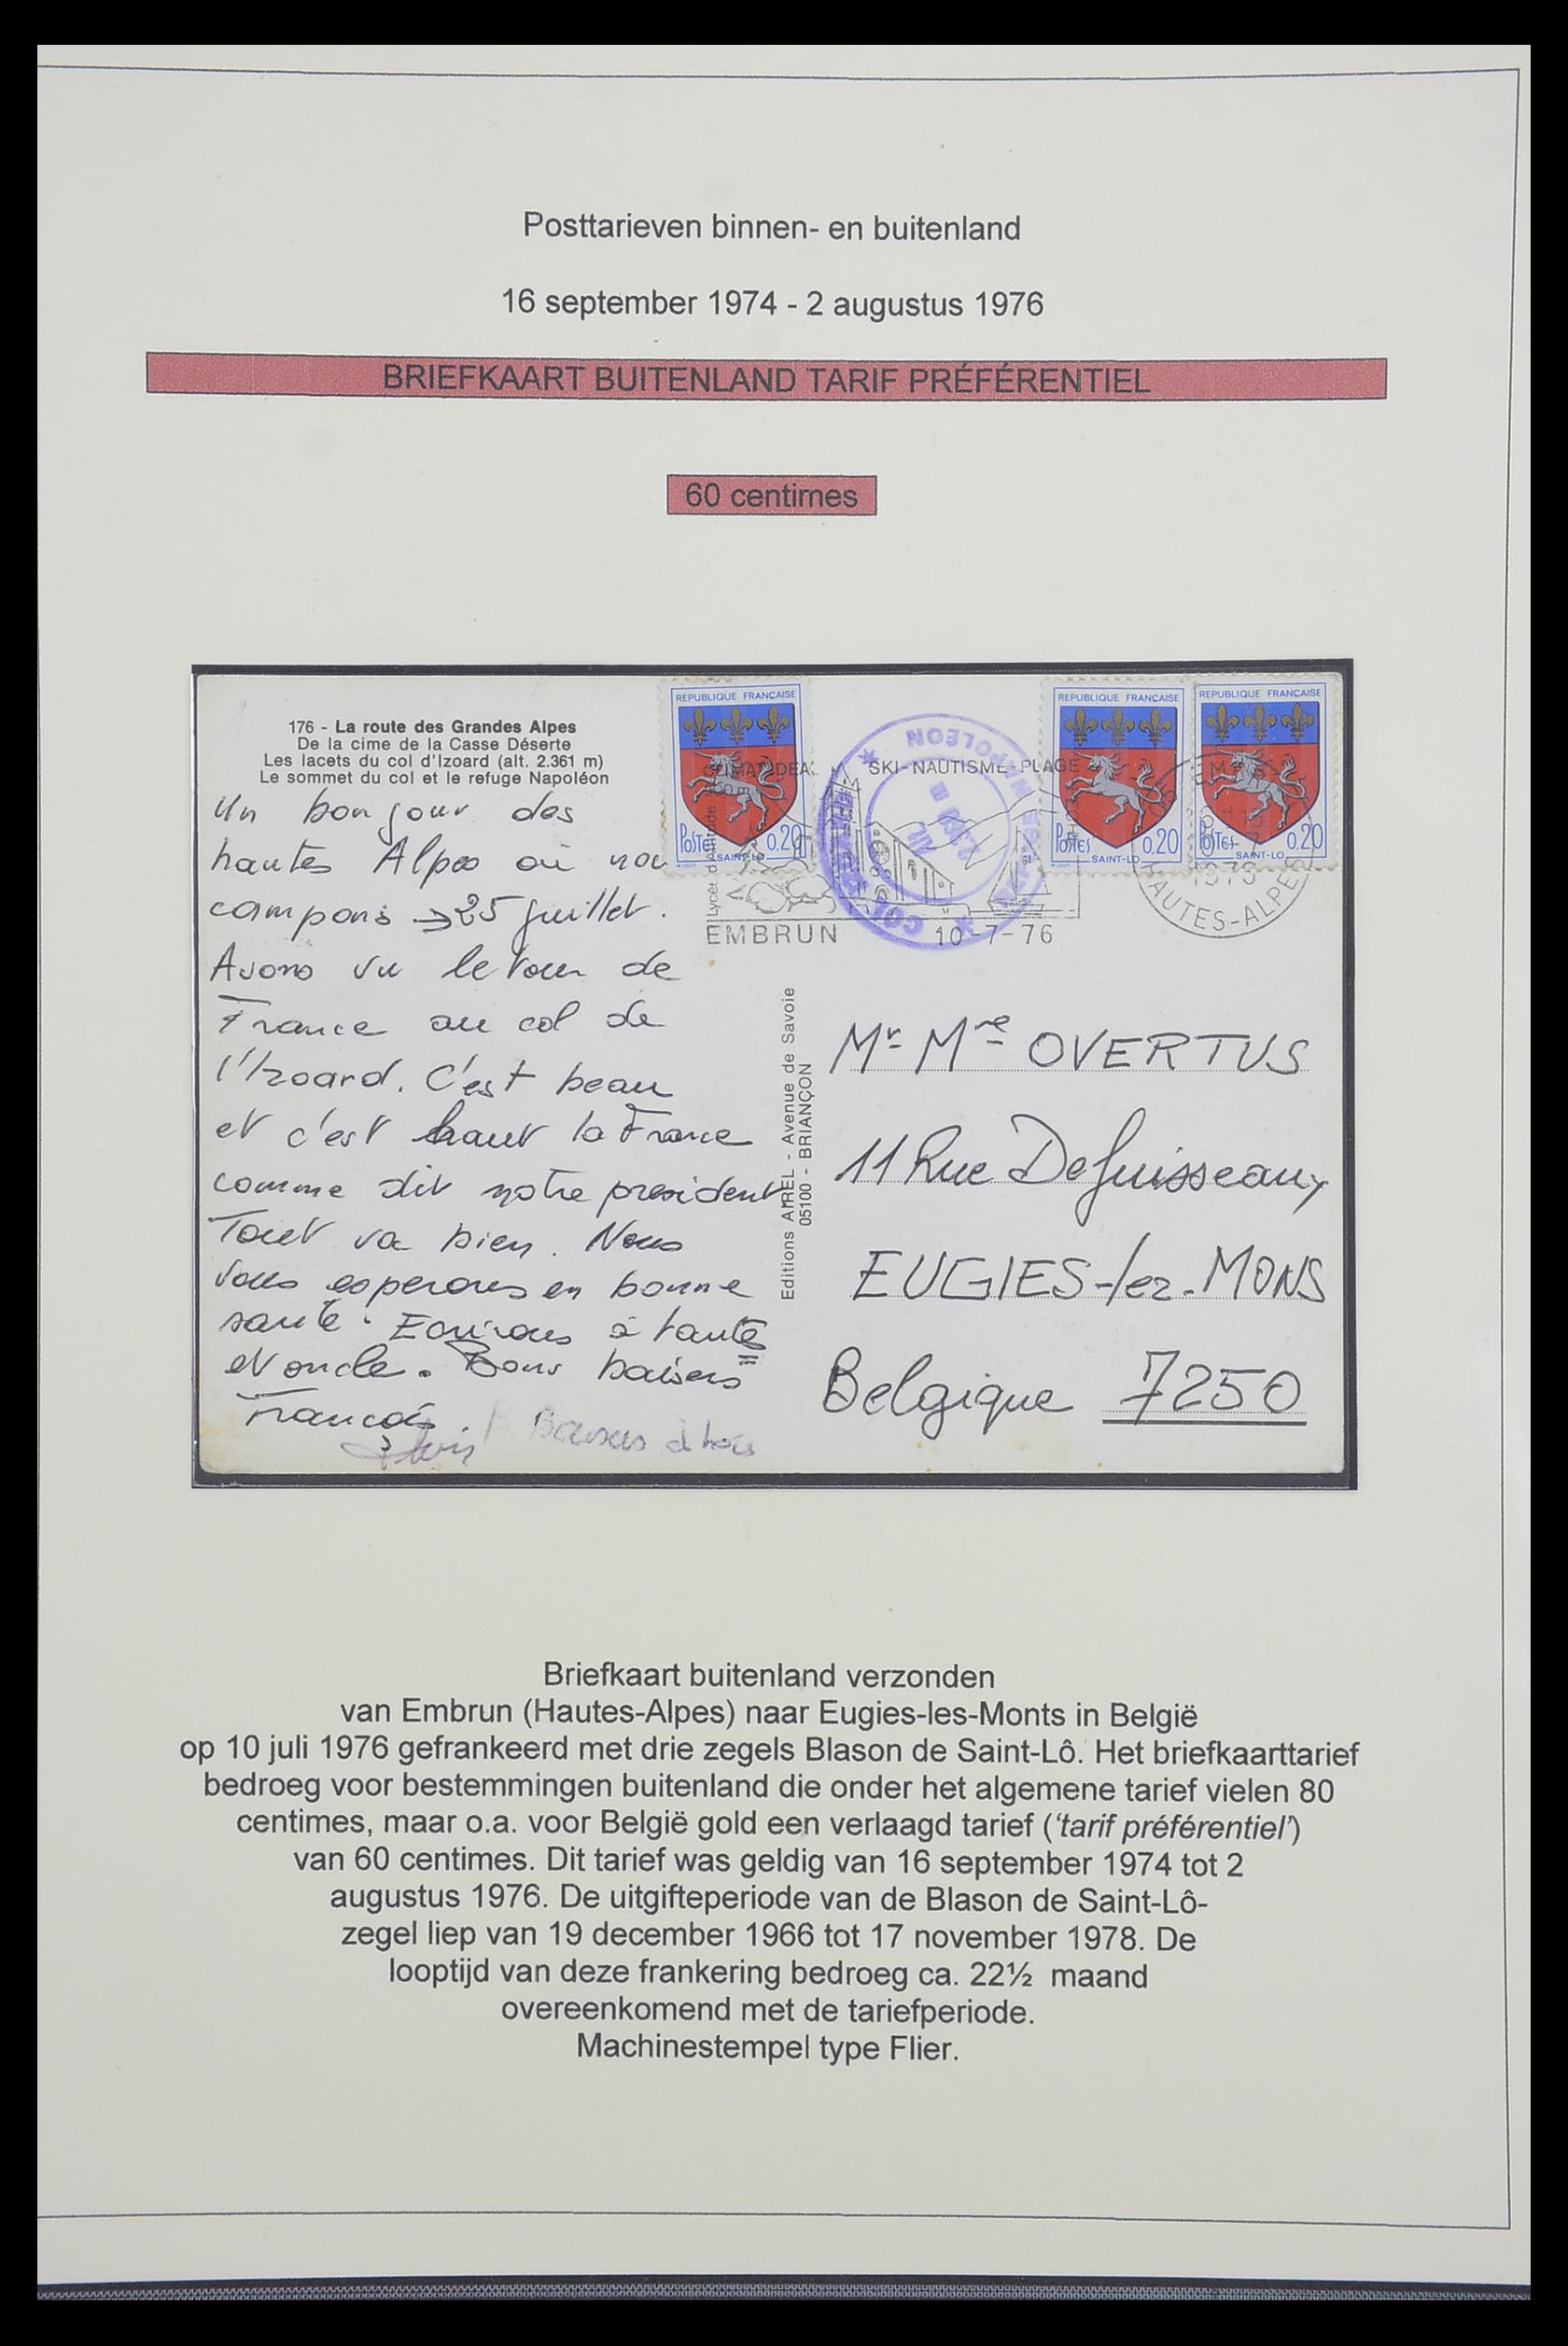 Posttarieven binnen- en buitenland
16 september 1974 - 2 augustus 1976
BRIEFKAART BUITENLAND TARIF PRÉFÉRENTIEL
60 centimes
176 - La route des Grandes Alpes
De la cime de la Casse Déserte
Les lacets du col d'Izoard (alt. 2.361 m)
Le sommet du col et le refuge Napoléon
REPUBLIQUE FRANÇAISE
POSTES 0,20
SAINT-LO
REPUBLIQUE FRANÇAISE
POSTES 0,20
SAINT-LO
REPUBLIQUE FRANÇAISE
POSTES 0,20
SAINT-LO
SKI-NAUTISME-PLAGE
EMBRUN 10-7-76
HAUTES-ALPES
NAPOLEON
COL
Un bonjour des
hautes Alpes où nou
campons → 25 juillet.
Avons vu le tour de
France au col de
l'Izoard. C'est beau
et c'est haut la France
comme dit notre president
Tout va bien. Nous
vous esperons en bonne
santé. Ecrivons à tantes
et oncle. Bons baisers
François
Baisers à tous
Editions APEL - Avenue de Savoie
05100 - BRIANÇON
Mr Mme OVERTUS
11 Rue Defuisseaux
EUGIES-lez-MONS
Belgique 7250
Briefkaart buitenland verzonden
van Embrun (Hautes-Alpes) naar Eugies-les-Monts in België
op 10 juli 1976 gefrankeerd met drie zegels Blason de Saint-Lô. Het briefkaarttarief
bedroeg voor bestemmingen buitenland die onder het algemene tarief vielen 80
centimes, maar o.a. voor België gold een verlaagd tarief (‘tarif préférentiel’)
van 60 centimes. Dit tarief was geldig van 16 september 1974 tot 2
augustus 1976. De uitgifteperiode van de Blason de Saint-Lô-
zegel liep van 19 december 1966 tot 17 november 1978. De
looptijd van deze frankering bedroeg ca. 22½ maand
overeenkomend met de tariefperiode.
Machinestempel type Flier.